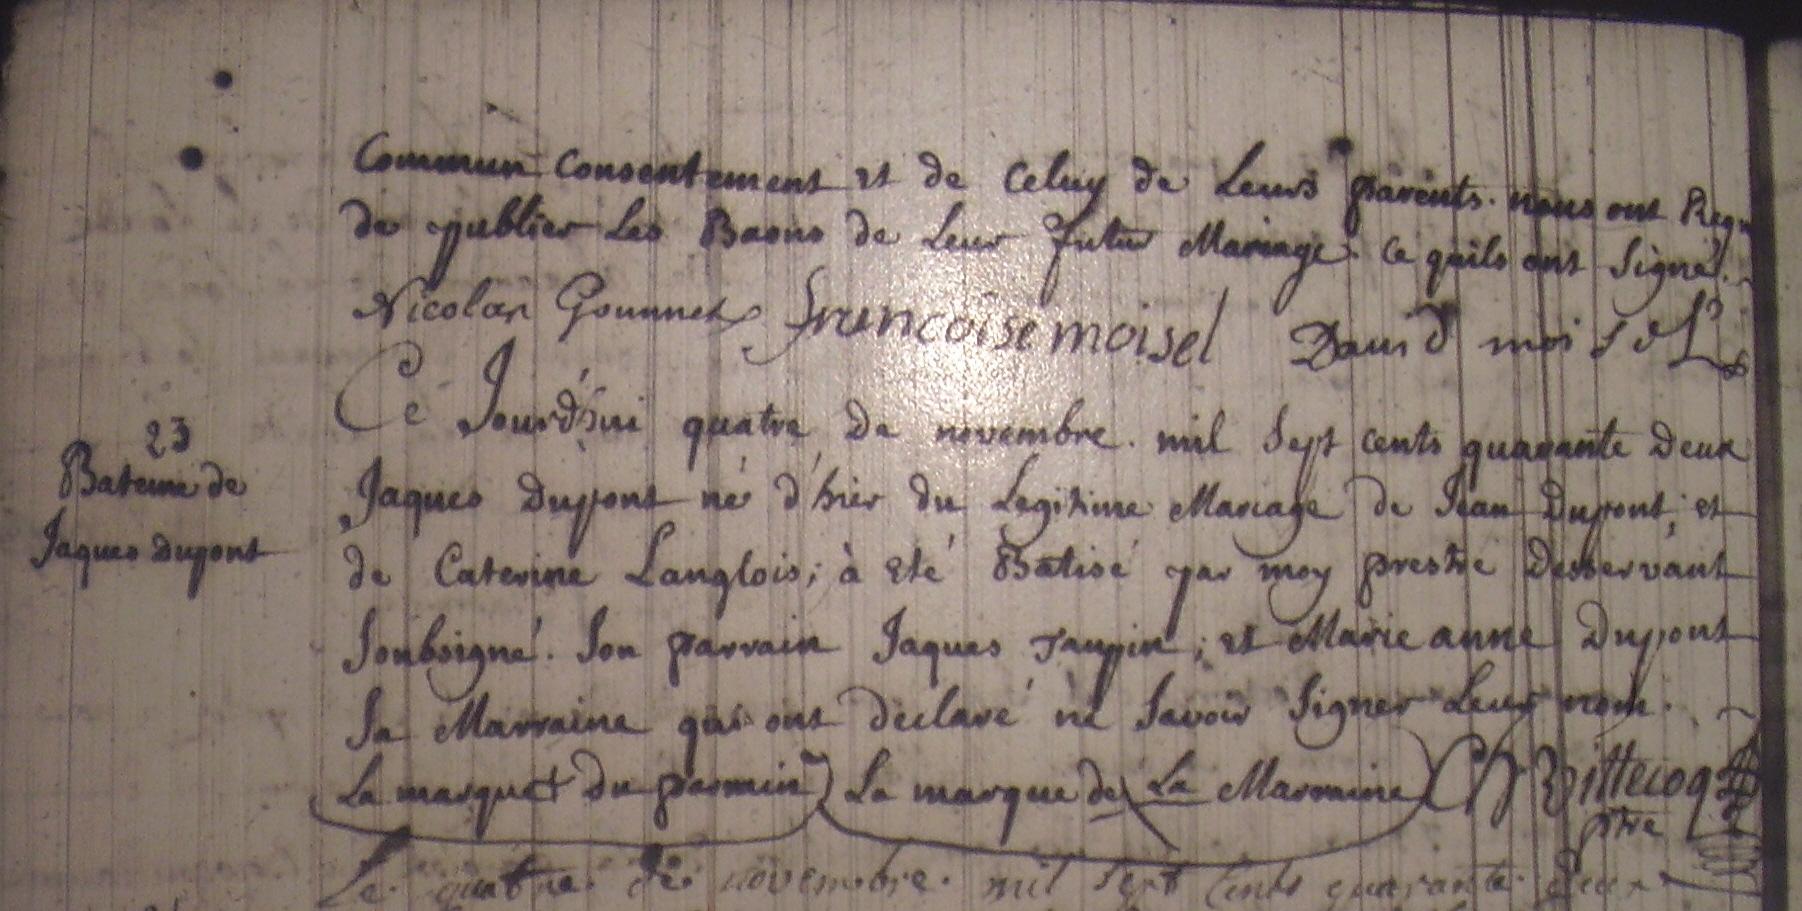 Commun Consentement et de Celuy de Leurs parents. nous ont Requ
de publier Les Banns de Leur futur Mariage. Ce quils ont Signé.
Nicolas Gounnet francoise moisel David moi
Ce Jourd'hui quatre de novembre. mil Sept cents quarante Deux
23
Bateme de
Jaques Dupont
Jaques Dupont né d'hier du Legitime Mariage de Jean Dupont; et
de Caterine Langlois; à eté Batisé par moy prestre Desservant
Soubsigné. Son parrain Jaques Taupin; et Marie anne Dupont
Sa Marraine qui ont declaré ne Savoir Signer Leur nom.
La marque + Du parrain La marque de La Marraine Vittecoq
ptre
Le quatre de novembre. mil Sept Cents quarante deux